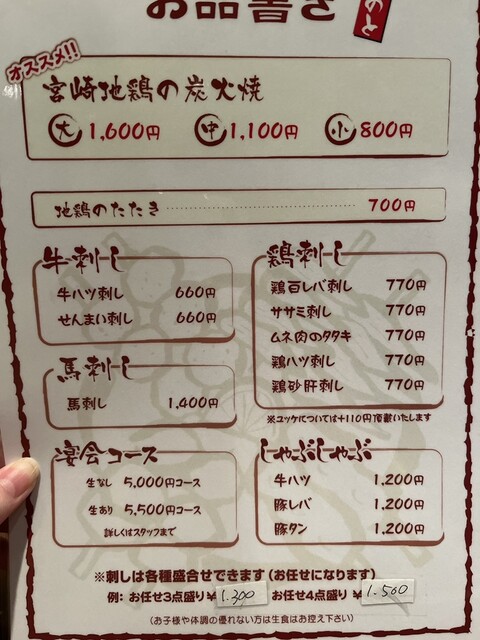 お品書き
のと
オススメ!!
宮崎地鶏の炭火焼
大 1,600円 中 1,100円 小 800円
地鶏のたたき 700円
牛刺し
牛ハツ刺し 660円
せんまい刺し 660円
馬刺し
馬刺し 1,400円
宴会コース
生なし 5,000円コース
生あり 5,500円コース
詳しくはスタッフまで
鶏刺し
鶏白レバ刺し 770円
ササミ刺し 770円
ムネ肉のタタキ 770円
鶏ハツ刺し 770円
鶏砂肝刺し 770円
※ユッケについては+110円頂戴いたします
しゃぶしゃぶ
牛ハツ 1,200円
豚レバ 1,200円
豚タン 1,200円
※刺しは各種盛合せできます(お任せになります)
例: お任せ3点盛り¥1.300 お任せ4点盛り¥1.560
(お子様や体調の優れない方は生食はお控え下さい)